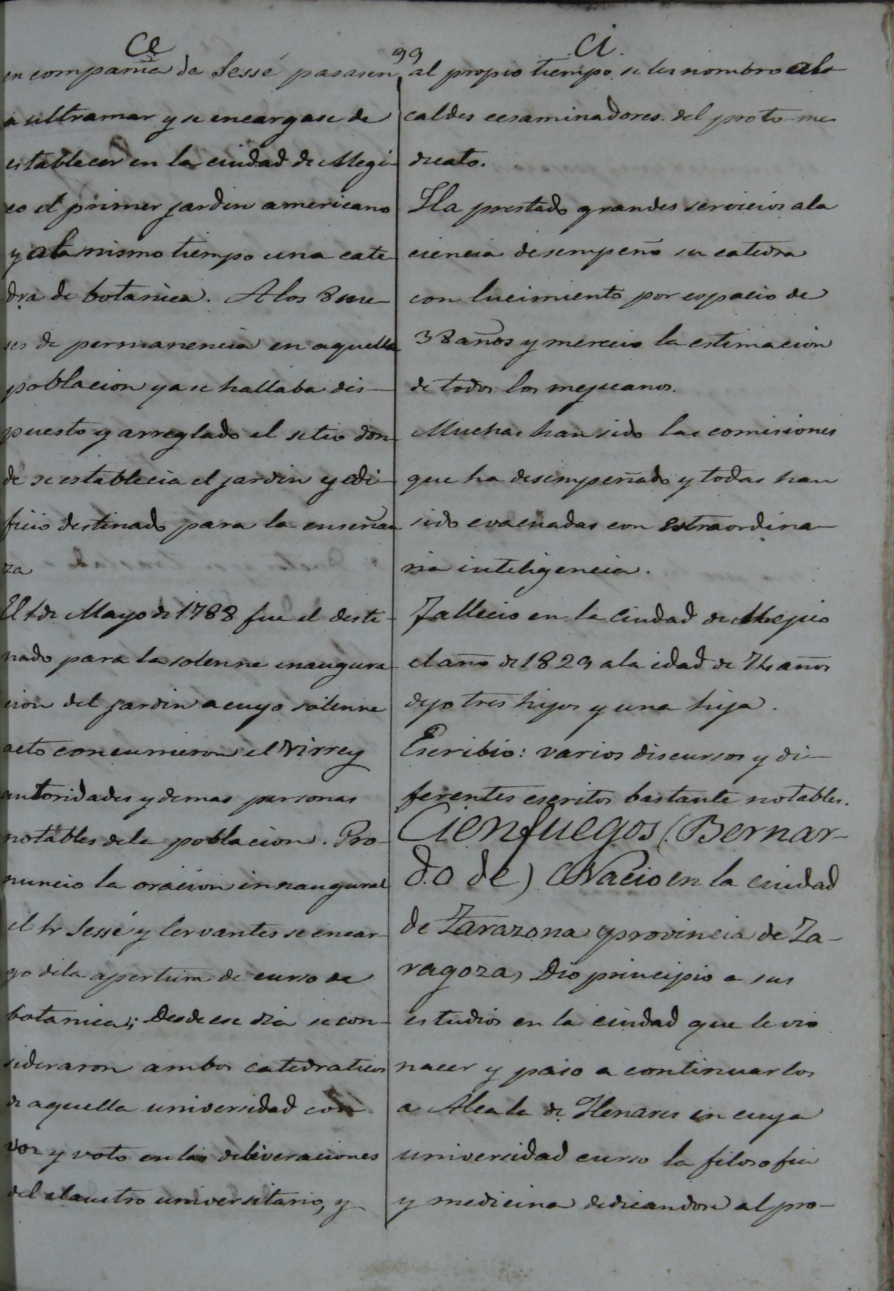 Ce
en compania de Sessé pasasen
a ultramar y se encargase de
establecer en la ciudad de Megi-
co el primer jardin americano
y al mismo tiempo una cate
dra de botanica. A los 8 me-
ses de permanencia en aquella
poblacion ya se hallaba dis-
puesto y arreglado el sitio don-
de se establecia el jardin y edi-
ficio destinado para la enseñan
za
El 1 de Mayo de 1788 fue el desti-
nado para la solenne inaugura-
cion del jardin a cuyo solenne
acto concurrieron el Virrey
autoridades y demas personas
notables dela poblacion. Pro-
nuncio la oracion innaugural
el Sr Sessé y Cervantes se encar-
go dela apertura de curso de
botanica; Desde ese dia se con-
sideraron ambos catedraticos
de aquella universidad con
voz y voto en las deliveraciones
del claustro universitario, y
99
Ci.
al propio tiempo se les nombro al-
caldes ecsaminadores del proto-me
dicato.
Ha prestado grandes servicios ala
ciencia desempeño su catedra
con lucimiento por espacio de
38 años y mercio la estimacion
de todos los mejicanos.
Muchas han sido las comisiones
que ha desempeñado y todas han
sido evacuadas con estraordina-
ria inteligencia.
Fallecio en la Ciudad de Mejico
el año de 1829 ala idad de 74 años
dejo tres hijos y una hija.
Escribio: varios discursos y di-
ferentes escritos bastante notables.
Cienfuegos (Bernar-
do de) Nacio en la ciudad
de Tarazona provincia de Za-
ragoza, Dio principio a sus
estudios en la ciudad que le vio
nacer y paso a continuarlos
a Alcala de Henares en cuya
universidad curso la filosofia
y medicina dedicandose al pro-